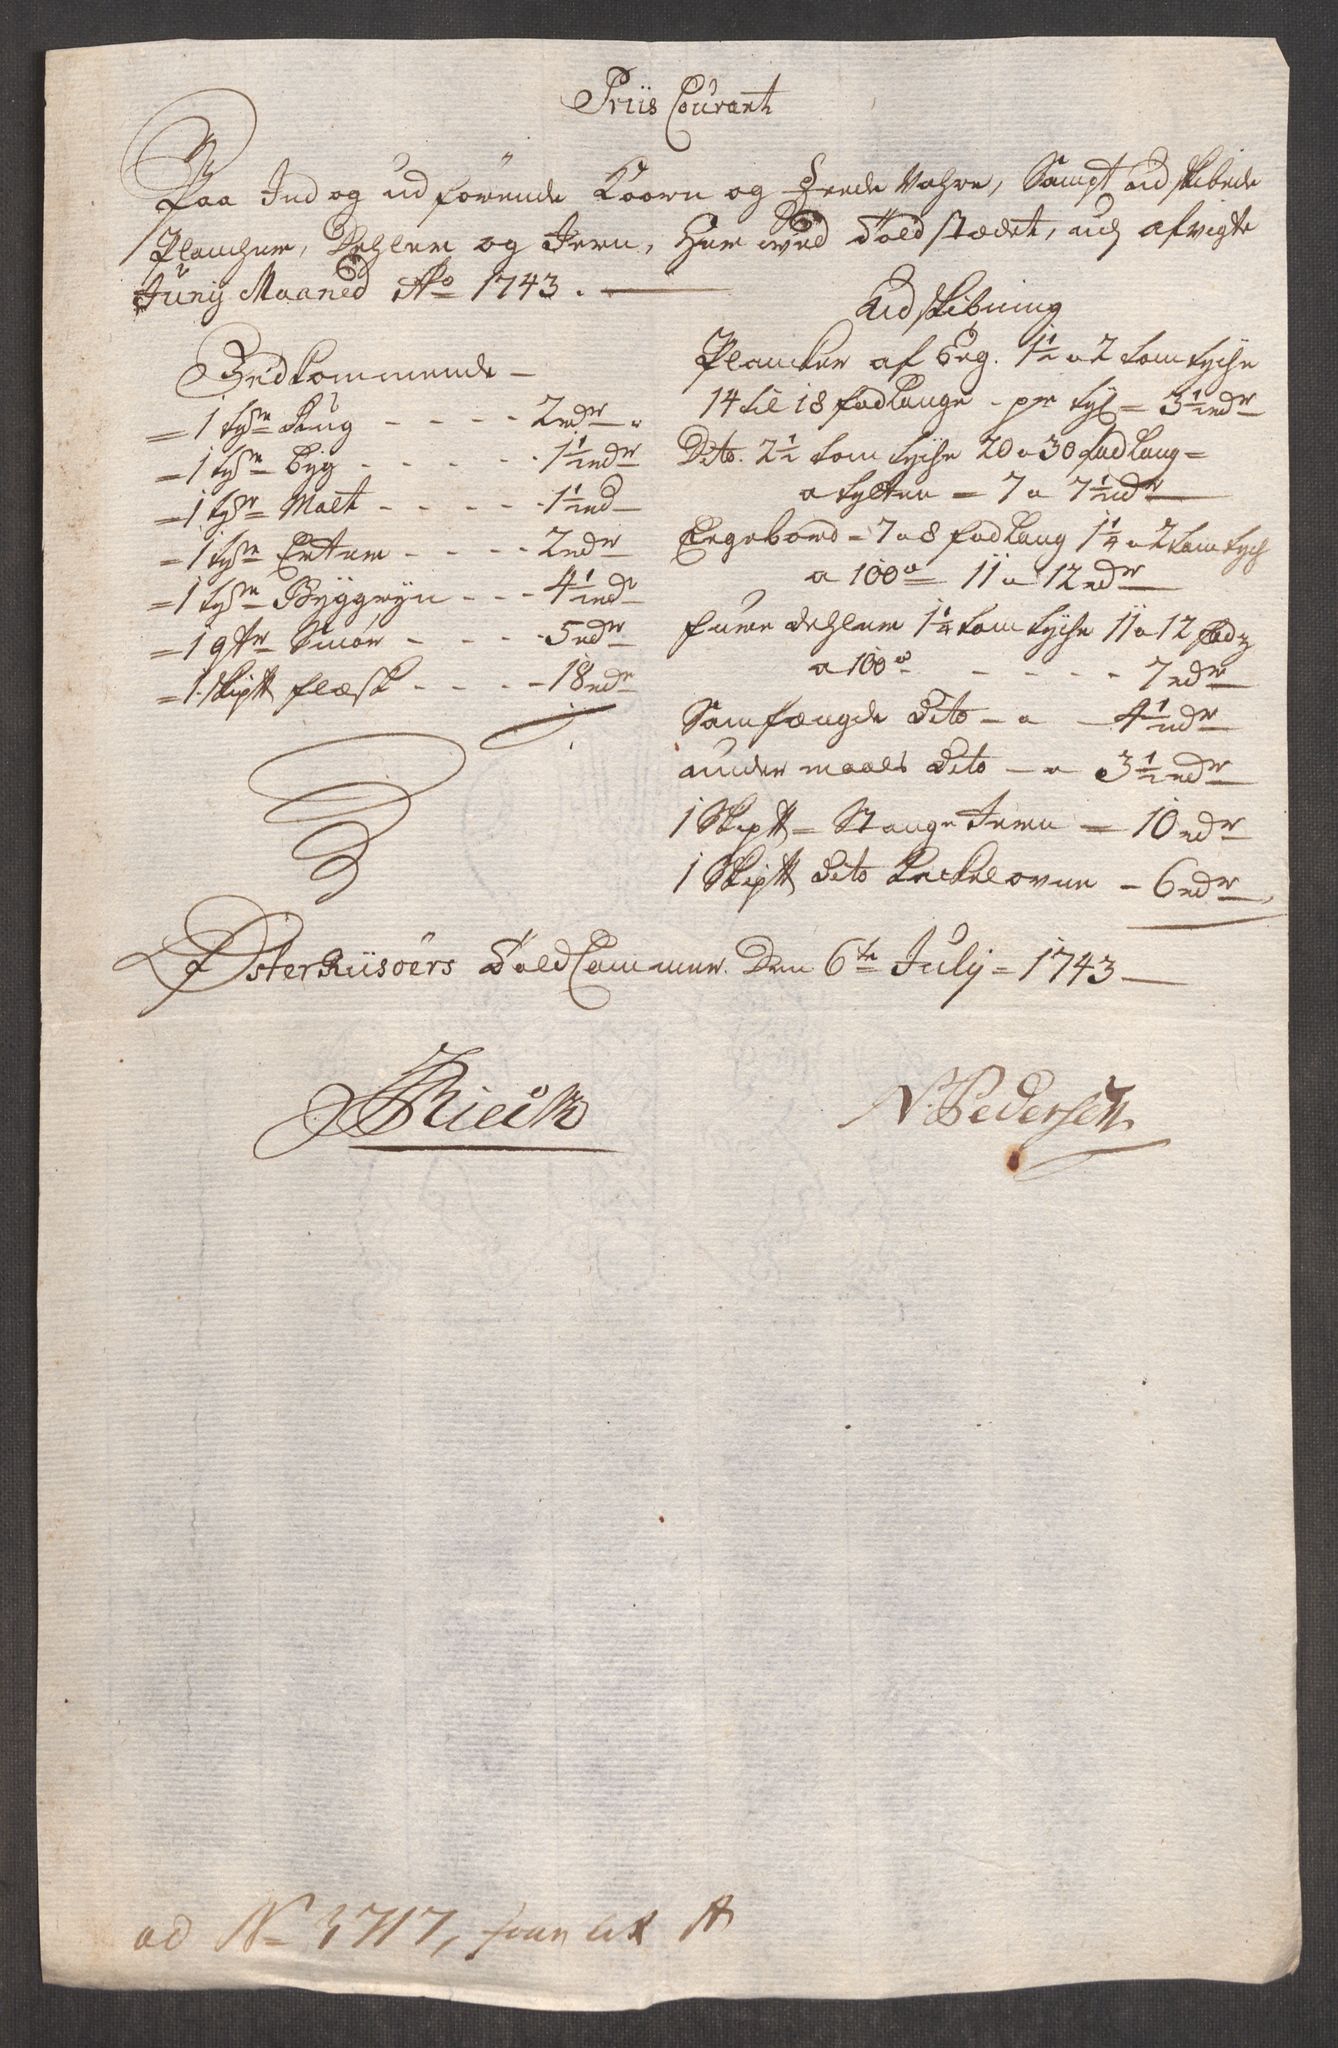 Priis Courant
Paa Ind og udførende Koorn og Feede Vahre, Sampt udskibede
Plancher, Dehler og Jern, Her ved Toldstædet, udj afvigte
Junij Maaned Ao 1743.
Indkommende
= 1 tyne Rug - - - 2 rdr
= 1 tyne Byg - - - - 1½ rdr
= 1 tyne Malt - - - - 1½ rd
= 1 tyne Erter - - - - 2 rdr
= 1 tyne Byggryn - - - 4½ rdr
= 1 qtr Smør - - - - 5 rdr
= 1 skiptt flæsk - - - - 18 rdr
Udskibning
Plancker af Eeg. 1½ a 2 tom tyche
14 til 18 fod lange - per tylt = 3½ rdr
Dito. 2½ tom tyche 20 a 30 fod lang =
a tylten = 7 a 7½ rdr
Eegebord = 7 a 8 fod lang 1¼ a 2 tom tych
a 100de 11 a 12 rdr
furre dehler 1¼ tom tyche 11 a 12 fod
a 100de - - - - 7 rdr
Samfængde dito - a - 4½ rdr
under maals dito - a - 3½ rdr
1 Skiptt = Stange Jern = 10 rdr
1 Skiptt dito Kackelovne - 6 rdr
Øster Riisøers Told Cammer. Den 6te July = 1743
N. Pedersen
ad No 3717, Lit A